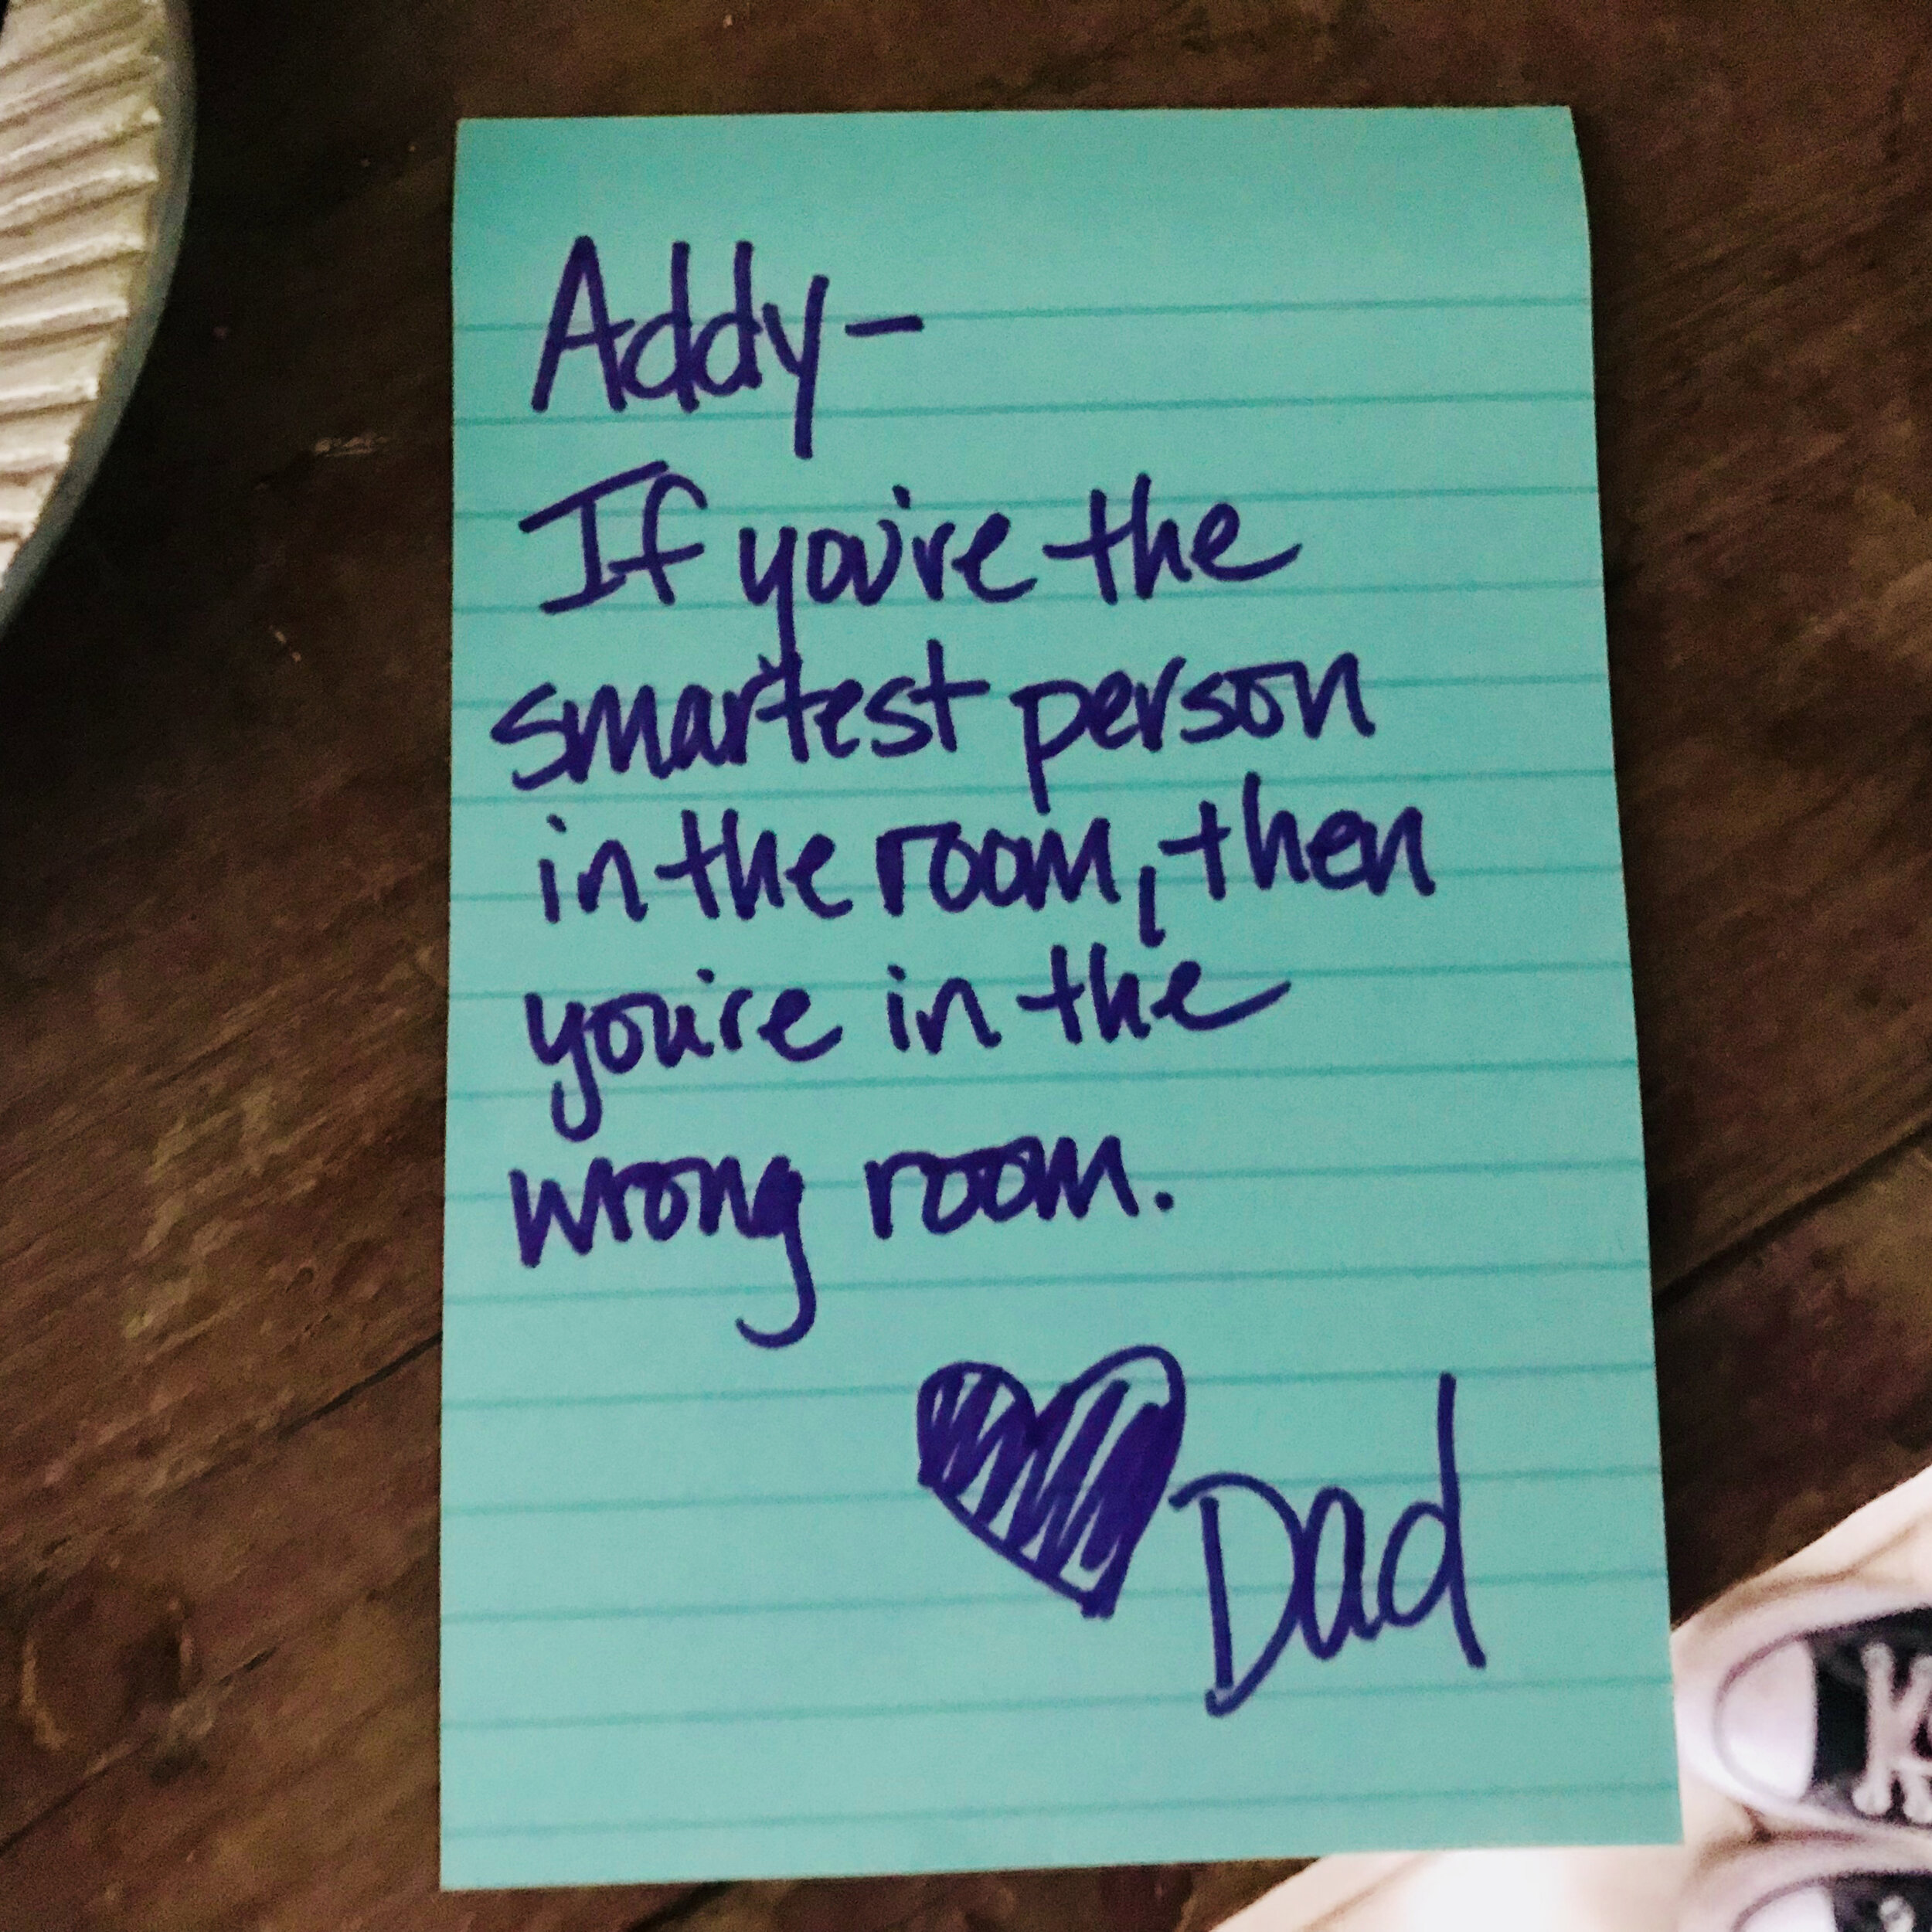 Addy-
If you're the
smartest person
in the room, then
you're in the
wrong room.
Dad